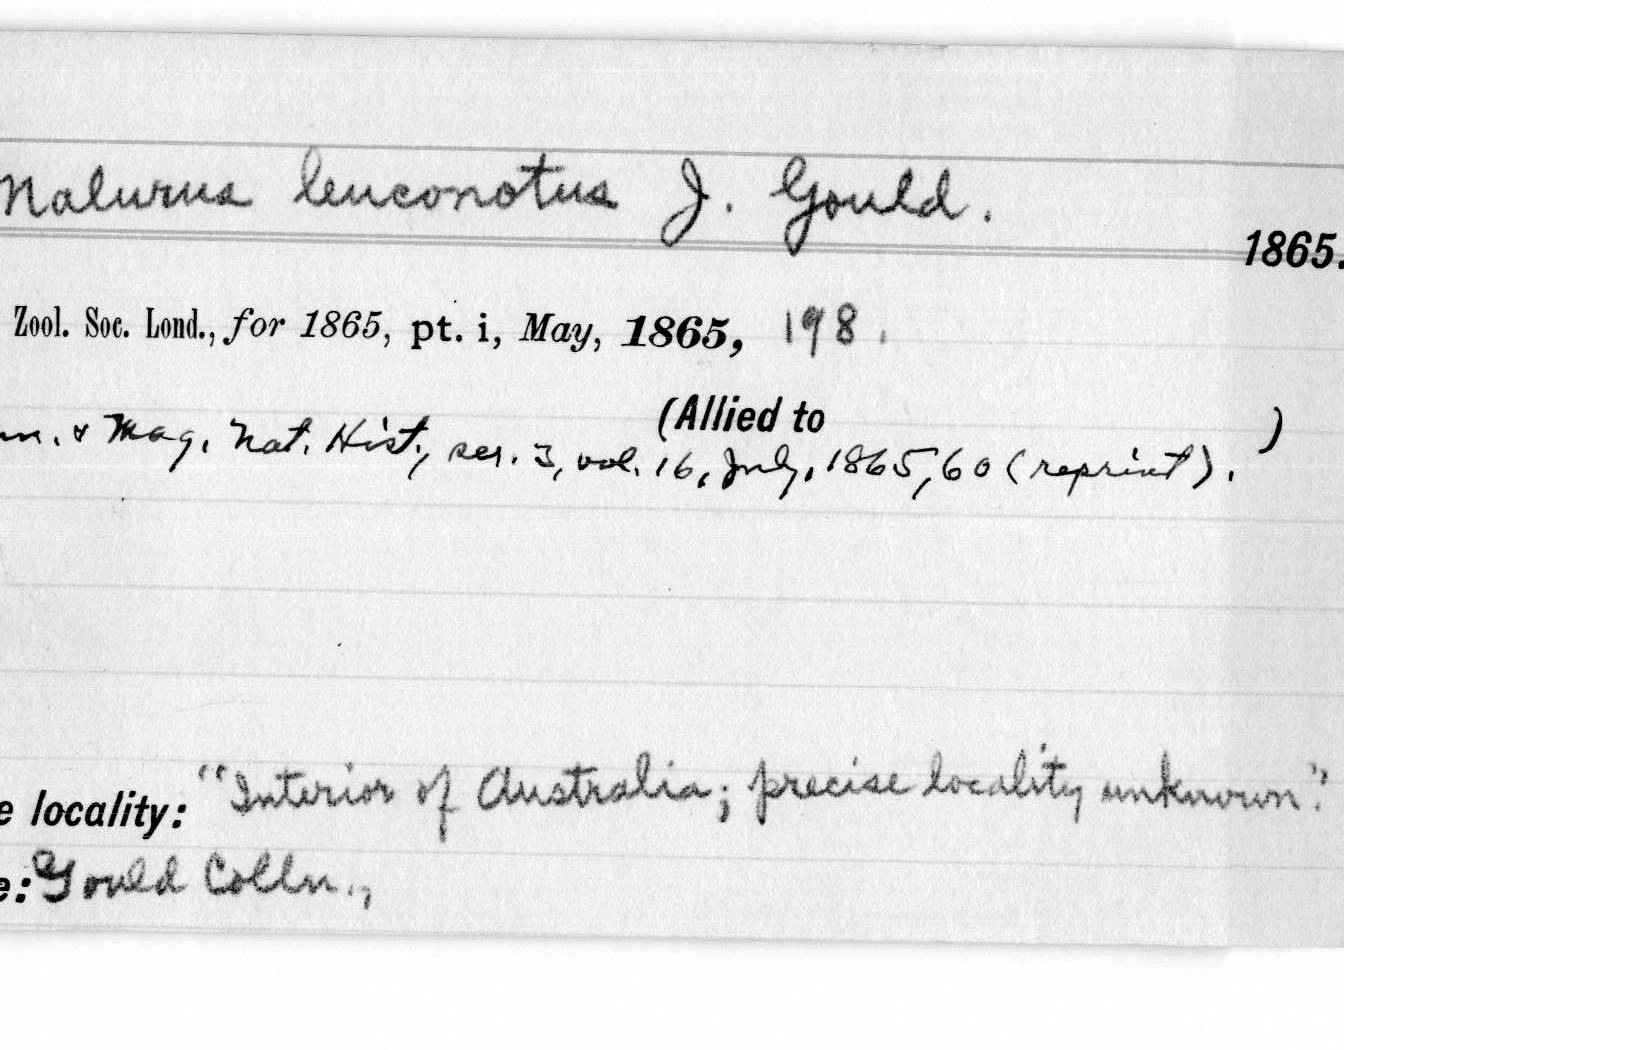 Malurus leuconotus J. Gould.
1865.
Zool. Soc. Lond., for 1865, pt. i, May, 1865, 198.
(Allied to )
nn. & Mag. Nat. Hist., ser. 3, vol. 16, July, 1865, 60 (reprint).
e locality: "Interior of Australia; precise locality unknown."
e: Gould Colln.,